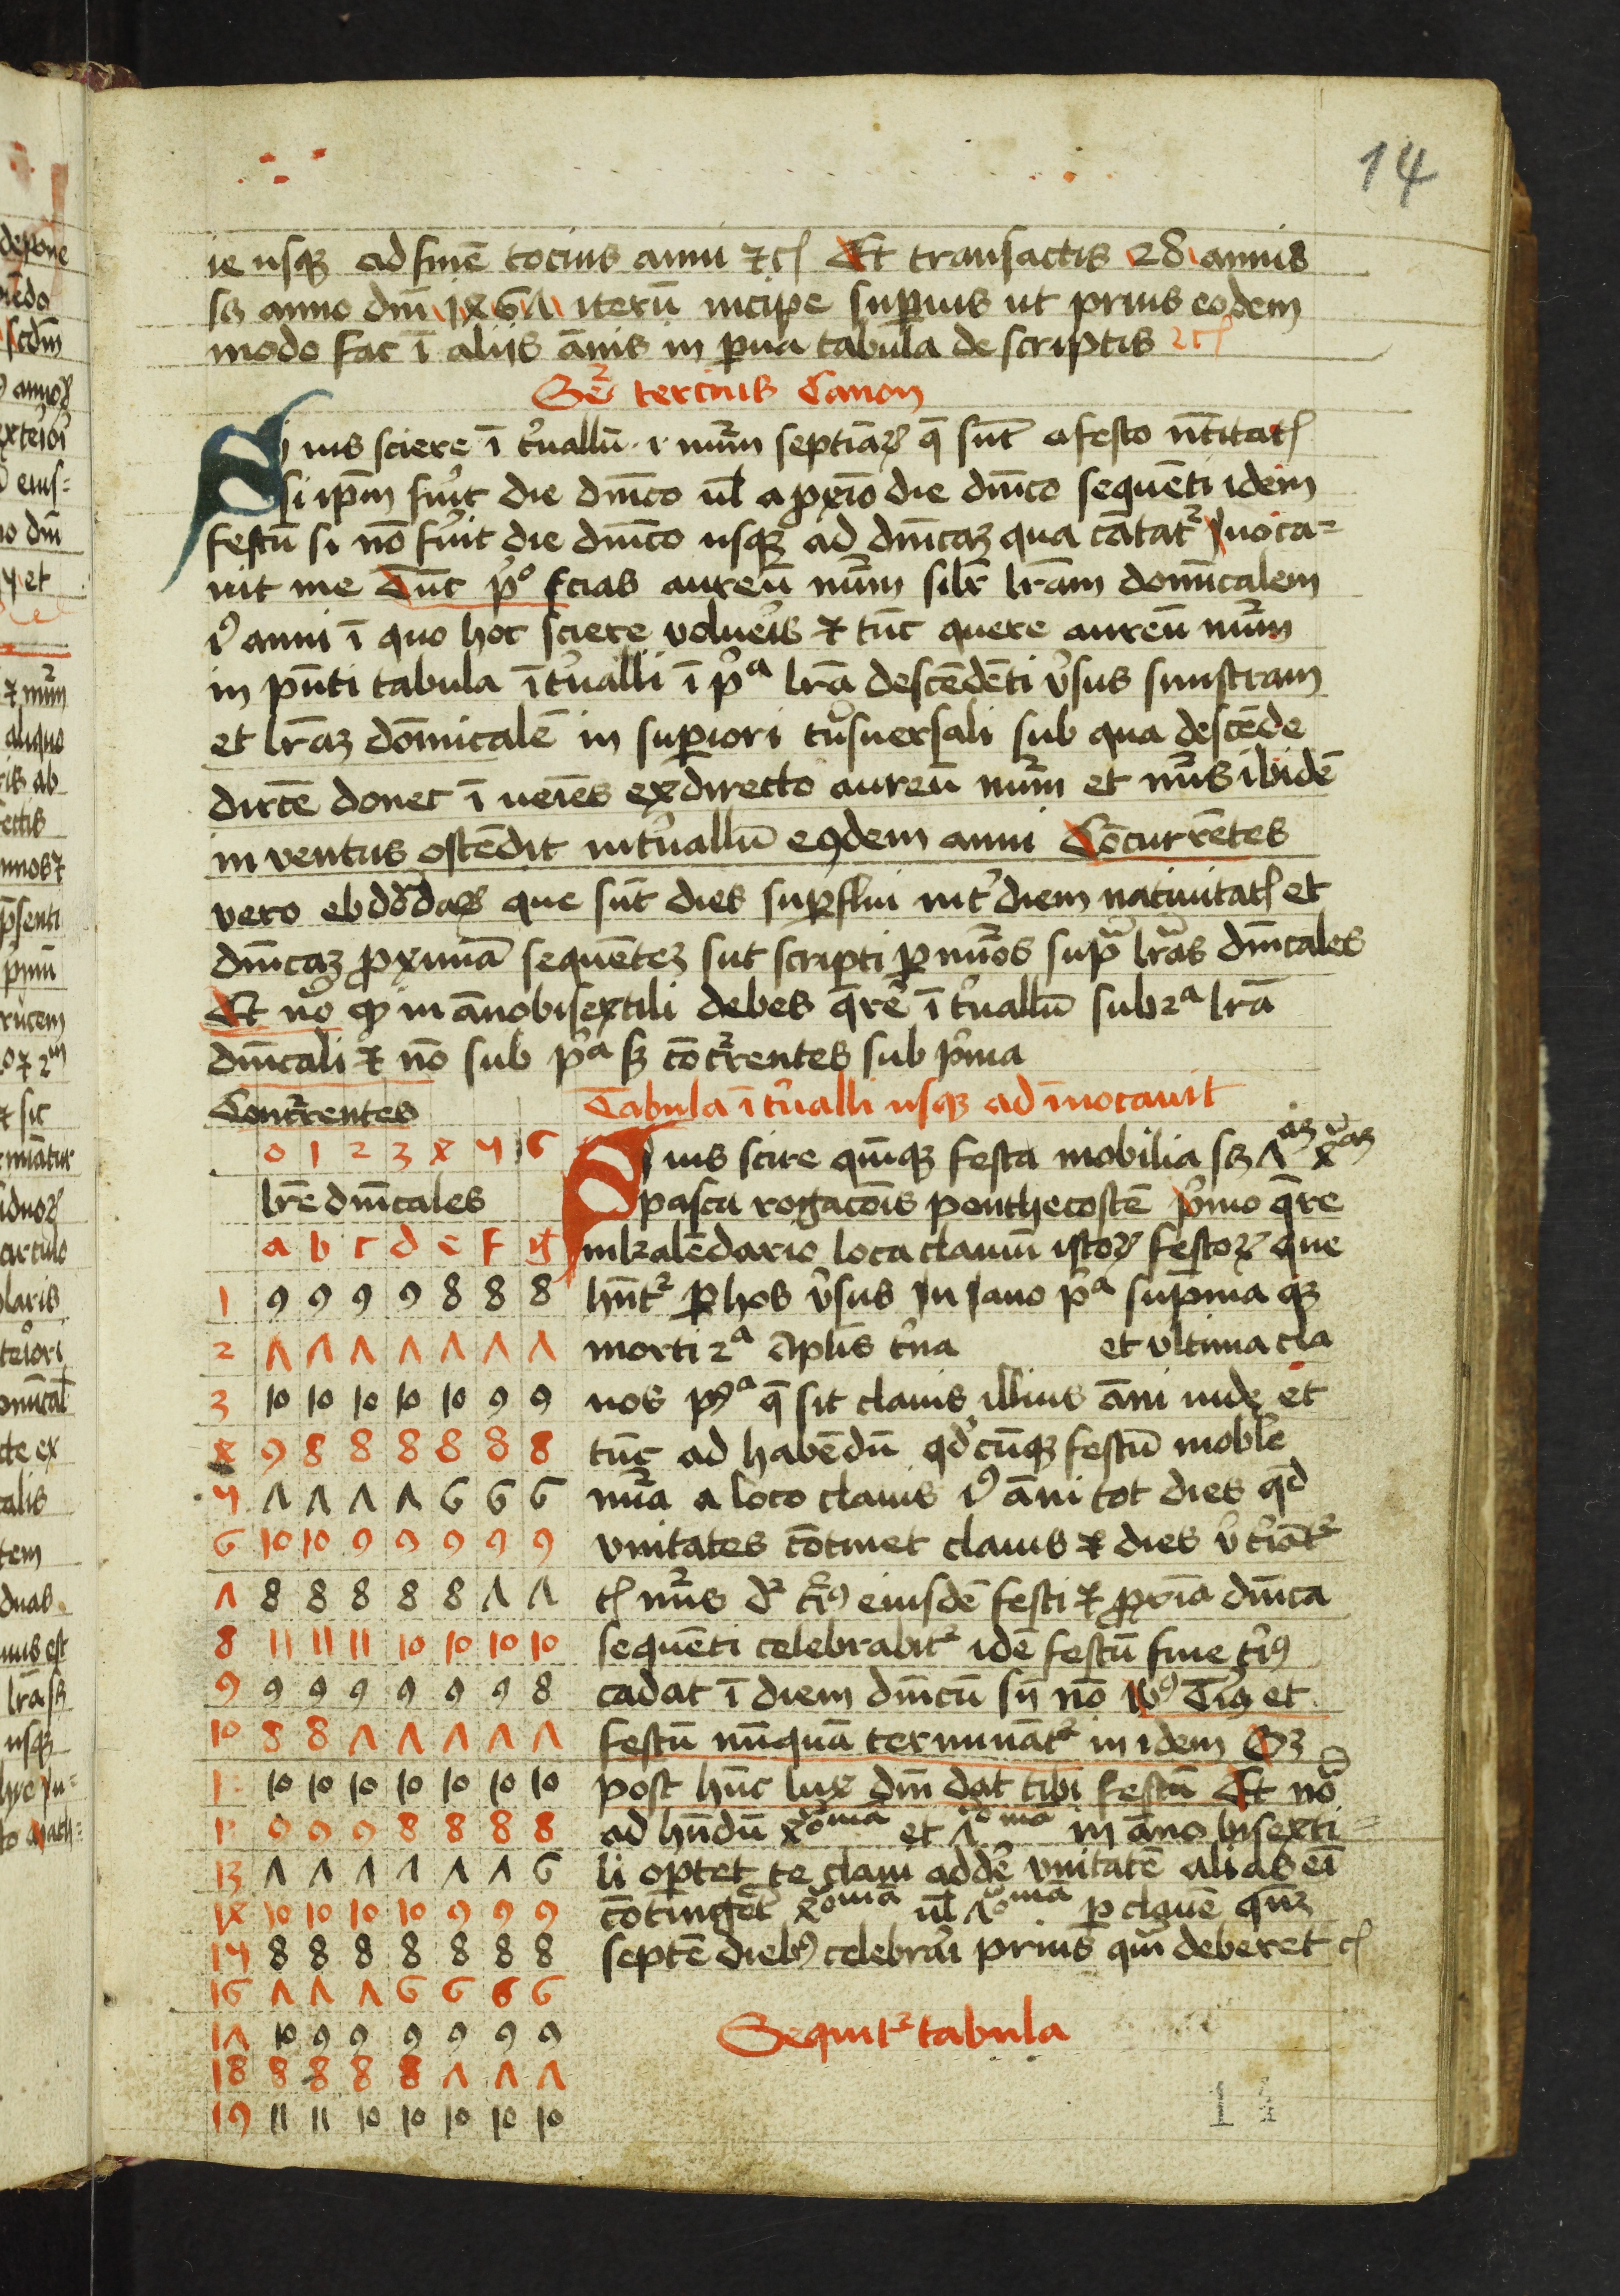 14
ie usqꝫ ad finē tocius anni ⁊cꝭ Et transactis 28 annis
sꝫ anno dm̄ 1467 iterū incipe suꝑius ut prius eodem
modo fac ī aliis ān̄is in ꝑua tabula descriptis ⁊cꝭ
tercius Canon
Si uis sciere īt̓uallū .i. nūm septiāꝝ q̄ sūt a festo
si ip̄m fu̓it die dn̄ico ul̄ a ꝓxīo die dn̄ico sequēti idem
festū si nō fu̓it die dn̄ico usqꝫ ad dn̄icaꝫ qua cātat̉ Inoca-
uit me Tūc p̓º scias aureū nūm lr̄am domīcalem
anni ī quo hoc sciere uolue̓is ⁊ tūc quere aureū nūm
in pn̄ti tabula īt̓ualli ī p̓ᵃ lr̄a descēdēti v̓sus sinistram
et lr̄aꝫ dōmicalē in suꝑiori sub qua descēde
dirc̄te donec ī ueīes ex directo aureū nūm et nūs ibidē
inventus ostēdit int̓uallū eꝰdem anni Cōcurrētes
vero que sūt dies suꝑflui int̓ diem natiuitatꝭ et
dn̄icaꝫ ꝓximā sequēteꝫ sūt scripti ꝑ nūos sup̄ lr̄as dn̄icales
Et nō ꝙ in āno bisextili debes q̄re̓ īt̓uallū sub 2ᵃ lr̄a
dn̄icali ⁊ nō sub p̓ᵃ sꝫ cōcr̉rentes sub p̓ma
Concr̉rentes
0 1 2 3 4 5 6
lr̄e dn̄icales
a b c d e f g
1 9 9 9 9 8 8 8
2 7 7 7 7 7 7 7
3 10 10 10 10 10 9 9
4 9 8 8 8 8 8 8
5 7 7 7 7 6 6 6
6 10 10 9 9 9 9 9
7 8 8 8 8 8 7 7
8 11 11 11 10 10 10 10
9 9 9 9 9 9 9 8
10 8 8 7 7 7 7 7
10 10 10 10 10 10 10
9 9 9 8 8 8 8
13 7 7 7 7 7 7 6
14 10 10 10 10 9 9 9
15 8 8 8 8 8 8 8
16 7 7 7 6 6 6 6
17 10 9 9 9 9 9 9
18 8 8 8 8 7 7 7
19 11 11 10 10 10 10 10
Tabula īt̓ualli usqꝫ ad īnocauit
Si uis scire quīqꝫ festa mobilia sꝫ 70ᵃꝫ 40ᵃꝫ
pasca rogacōis penthecostē p̓mo q̄re
in kalēdario loca clauiū istoꝝ festoꝝ que
hn̄t̉ ꝑ hos v̓sus In Iano p̓ᵃ sup̄ma qꝫ
morti 2ᵃ Aplīs t̓na et ultima cla
uos pꝰᵃ q̄ sit clauis illius āni uide et
tūc ad habēdū qd̓cūqꝫ festū moble̓
nūa a loco clauis āni tot dies qd̄
vnitates cōtinet clauis ⁊ dies
nūs d̉ eiusdē festi ⁊ ꝓxīa dn̄ica
sequēti celebrabit̉ idē festū siue t̓īꝰ
cadat ī diem dn̄icū sīi nō Tīꝰ et
festū nūquā terminat̉ in idem Sꝫ
post hūc lux dm̄ dat tibi festū Et nō
ad hn̄dū 40ᵐᵃ et 70ᵐᵃ in āno bisexti-
li oportet te claui adde̓ vnitatē alias eī
cōtinget̉ 40ᵐᵃ ul̄ 70ᵐᵃ ꝑ clauē
septē diebꝰ celebra̓i prius qͣ̄ deberet ⁊cꝭ
Sequit̉ tabula
14